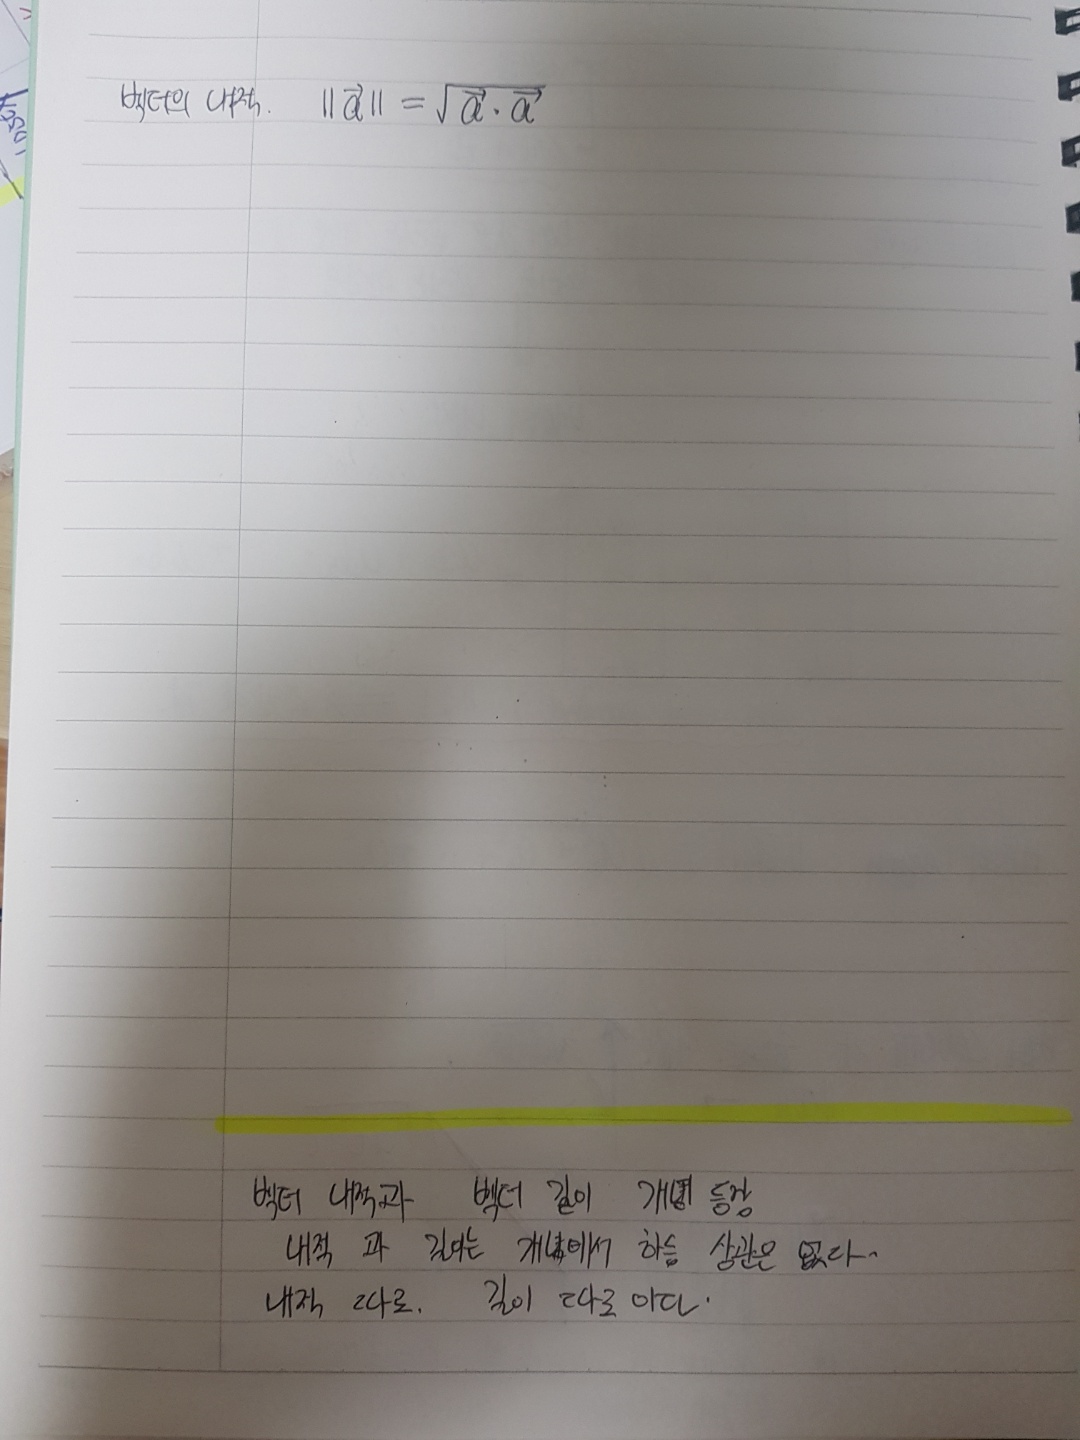 벡터의 내적. ||a⃗|| = √a⃗·a⃗
벡터 내적과 벡터 길이 개념 등장
내적 과 길이는 개념에서 하등 상관은 없다.
내적 따로. 길이 따로 이다.